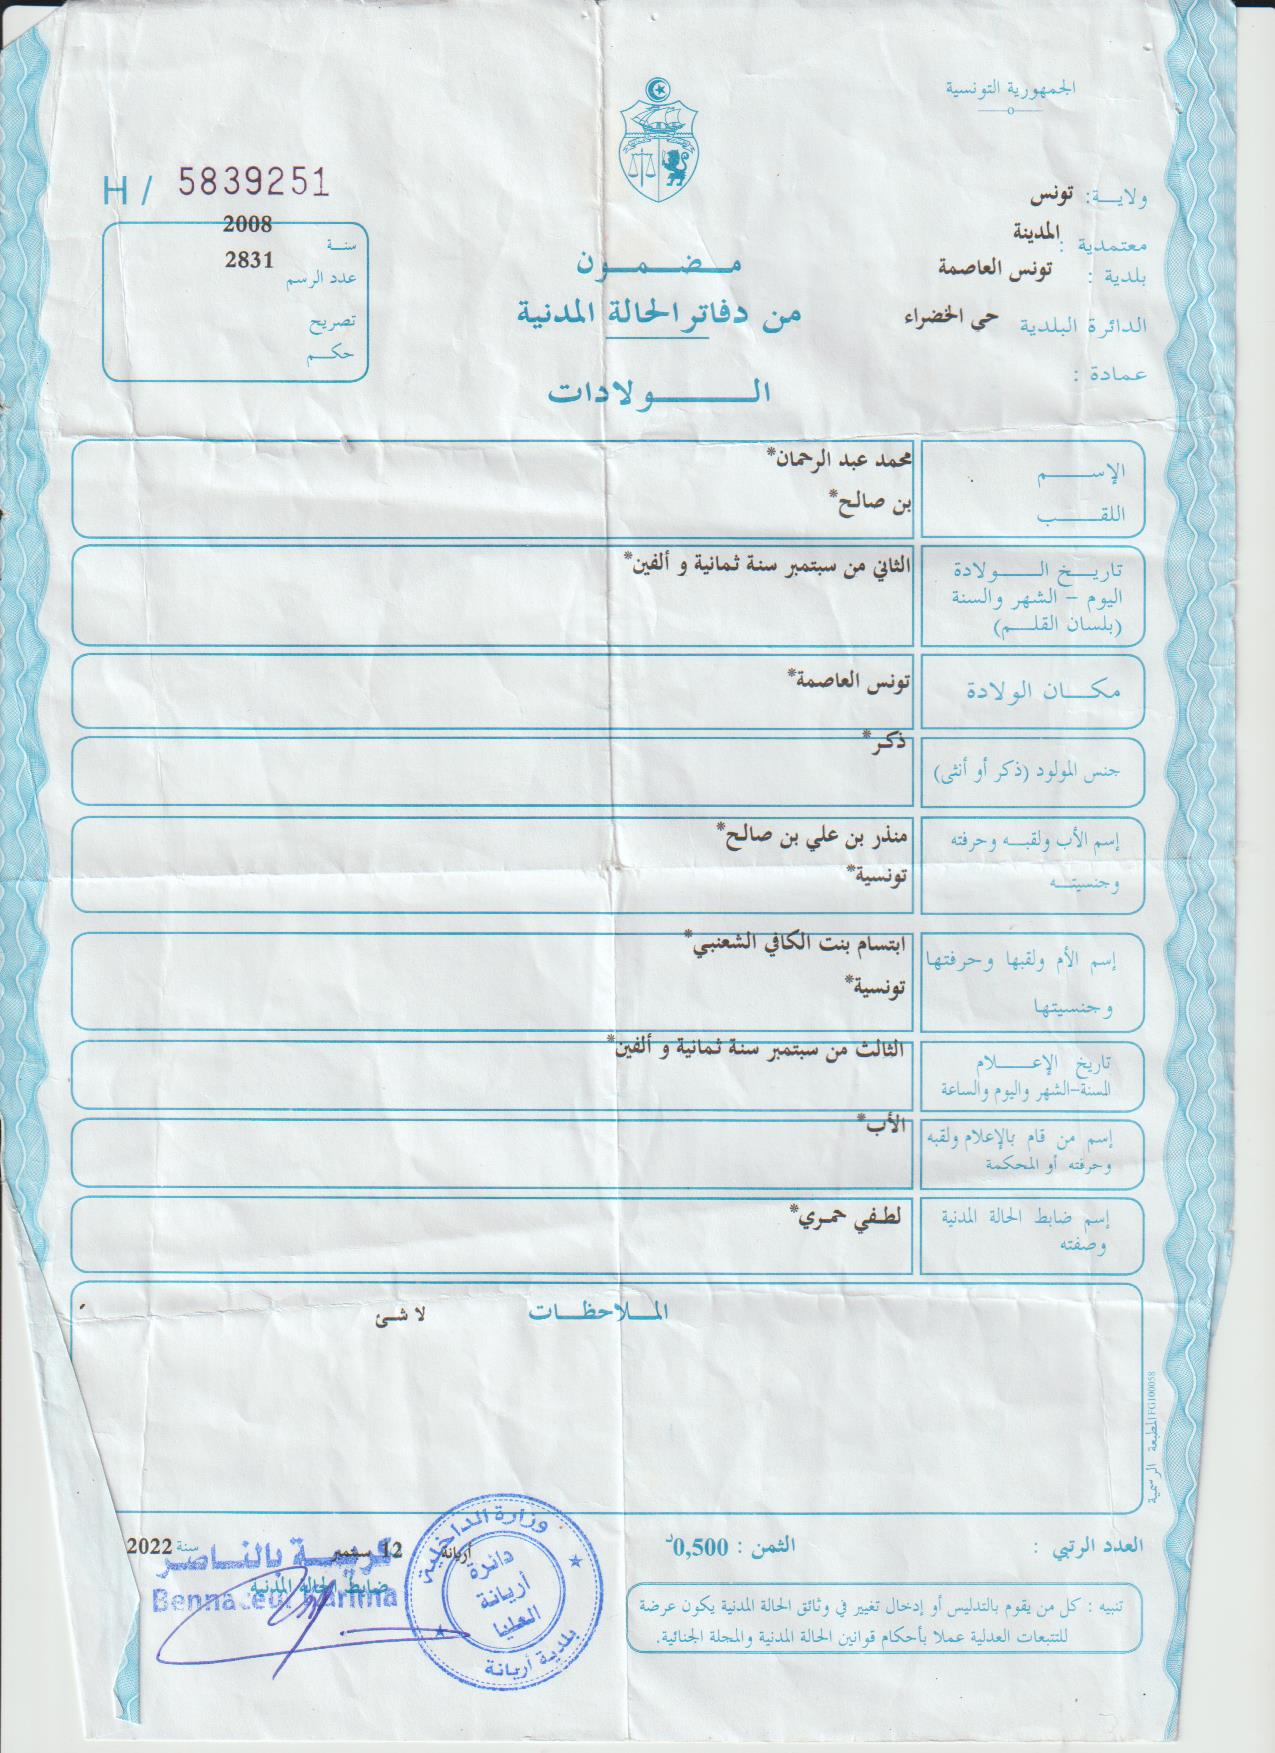 الجمهورية التونسية
H / 5839251
ولايـــة: تونس
معتمدية : المدينة
بلدية : تونس العاصمة
الدائرة البلدية حي الخضراء
عمادة :
سنة 2008
عدد الرسم 2831
تصريح
حكم
مضمون
من دفاتر الحالة المدنية
الـولادات
الإسم محمد عبد الرحمان*
اللقب بن صالح*
تاريخ الـولادة الثاني من سبتمبر سنة ثمانية و ألفين*
اليوم - الشهر والسنة
(بلسان القلم)
مكان الولادة تونس العاصمة*
جنس المولود (ذكر أو أنثى) ذكر*
إسم الأب ولقبه وحرفته منذر بن علي بن صالح*
وجنسيته تونسية*
إسم الأم ولقبها وحرفتها ابتسام بنت الكافي الشعنبي*
وجنسيتها تونسية*
تاريخ الإعلام الثالث من سبتمبر سنة ثمانية و ألفين*
السنة-الشهر واليوم والساعة
إسم من قام بالإعلام ولقبه الأب*
وحرفته أو المحكمة
إسم ضابط الحالة المدنية لطفي حمري*
وصفته
الملاحظات لا شئ
المطبعة الرسمية IFG100058
العدد الرتبي :
الثمن : 0,500د
أريانة 12 سبتمبر سنة 2022
كريمة بالناصر
ضابط الحالة المدنية
وزارة الداخلية
دائرة
أريانة
العليا
بلدية أريانة
تنبيه : كل من يقوم بالتدليس أو إدخال تغيير في وثائق الحالة المدنية يكون عرضة
للتتبعات العدلية عملا بأحكام قوانين الحالة المدنية والمجلة الجنائية.